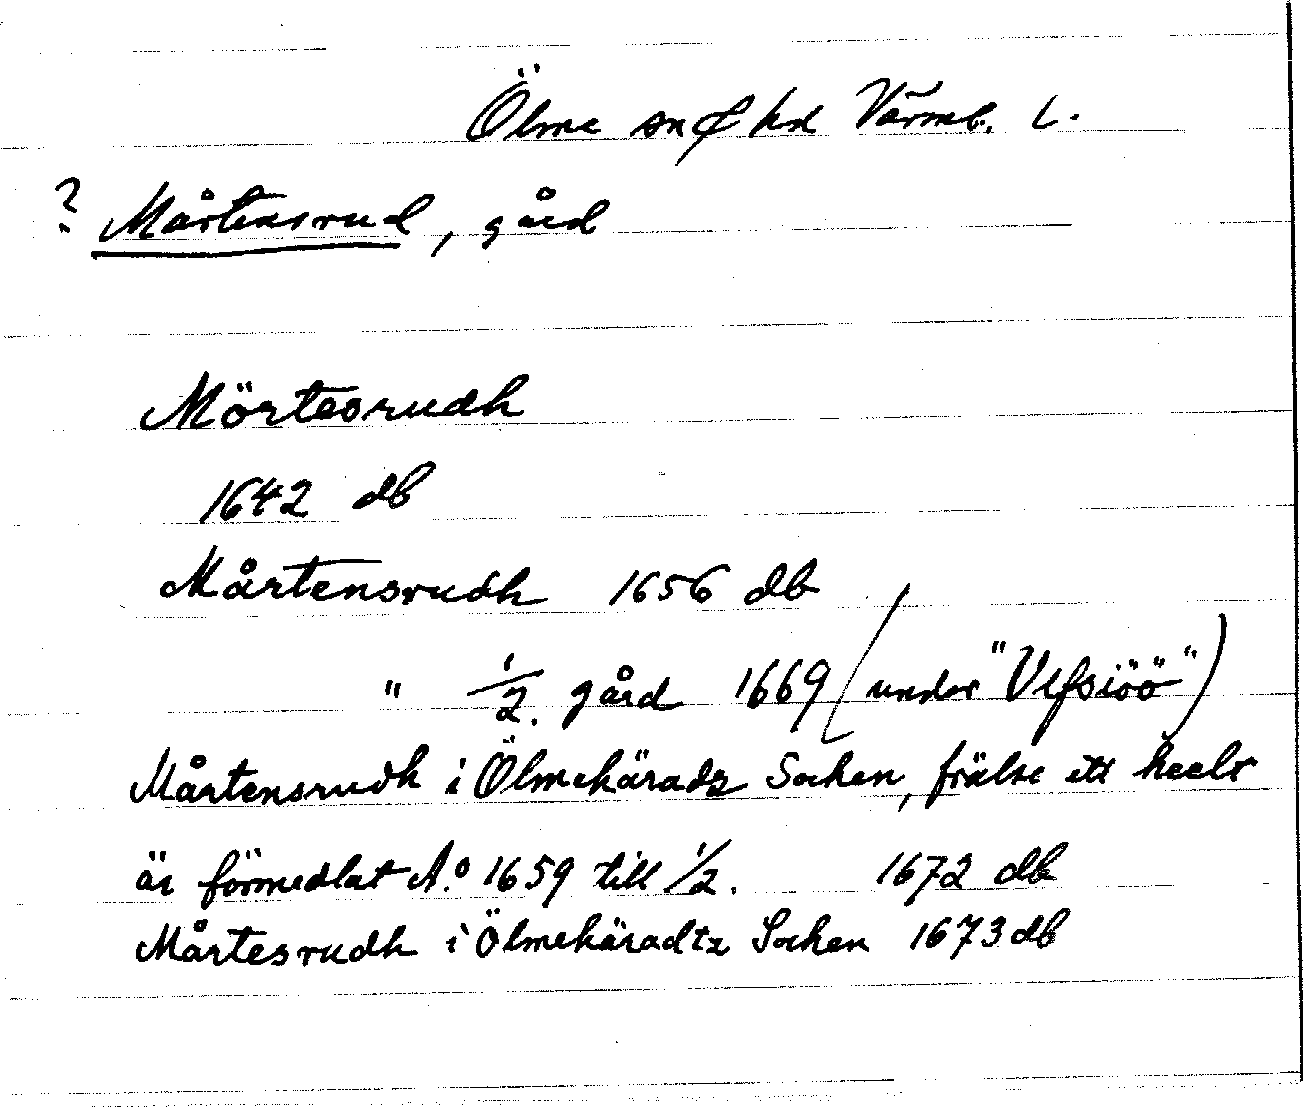 Ölme sn & hd Värml. L.
? Mårtensrud, gård
Mörtesrudh
1642 db
Mårtensrudh 1656 db
" 1/2. gård 1669 (under "Vefsiöö")
Mårtensrudh i Ölmehäradz Sochen, frälse ett heelt
är förmedlat Ao. 1659 till 1/2. 1672 db
Mårtesrudh i Ölmehäradtz Sochen 1673 db